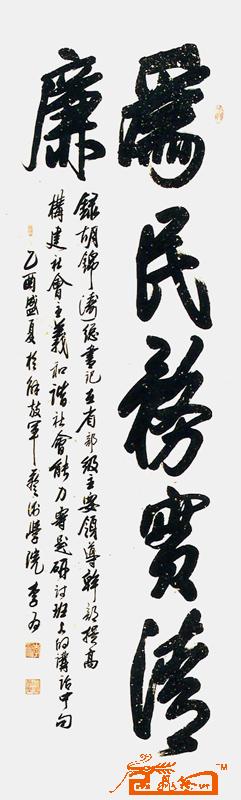 為民務實清
廉
錄胡錦濤總書記在省部級主要領導幹部提高
構建社會主義和諧社會能力專題研討班上的講話中句
乙酉盛夏於解放軍藝術學院 李